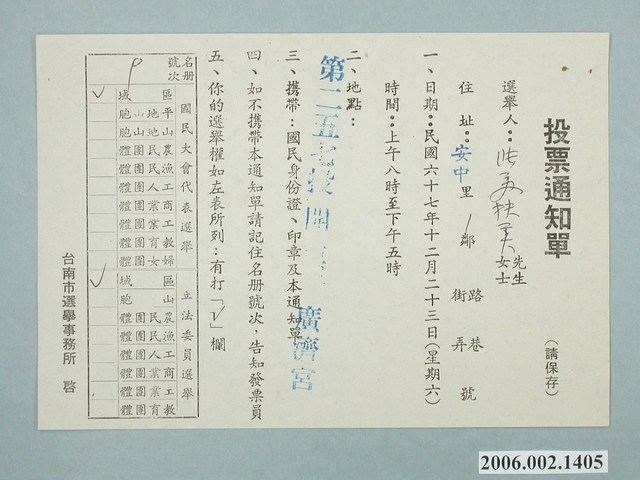 投票通知單
(請保存)
選舉人：洪美
先生
女士
住 址：安中里 鄰 街路 巷弄 號
一、日期：民國六十七年十二月二十三日(星期六)
時間：上午八時至下午五時
二、地點：
第二五
投開
廣濟宮
三、携帶：國民身份證、印章及本通知單
四、如不携帶本通知單請記住名册號次，告知發票員
五、你的選舉權如左表所列：有打「√」欄
名册號次
國民大會代表選舉
區域
平地山胞
山地山胞
農民團體
漁民團體
工人團體
商業團體
工業團體
教育團體
婦女團體
立法委員選舉
區域
山胞
農民團體
漁民團體
工人團體
商業團體
工業團體
教育團體
台南市選舉事務所 啓
2006.002.1405